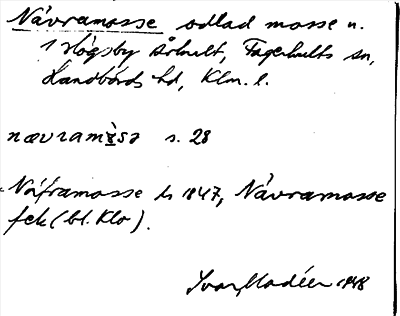 Návramosse odlad mosse u.
1 Högsby Århult, Fagerhults sn,
Handbörds hd, Klm. l.
nævramɔsə s. 28
Näframosse ls 1847, Návramosse
fek (bl. Klo).
Ivar Modéer 1948